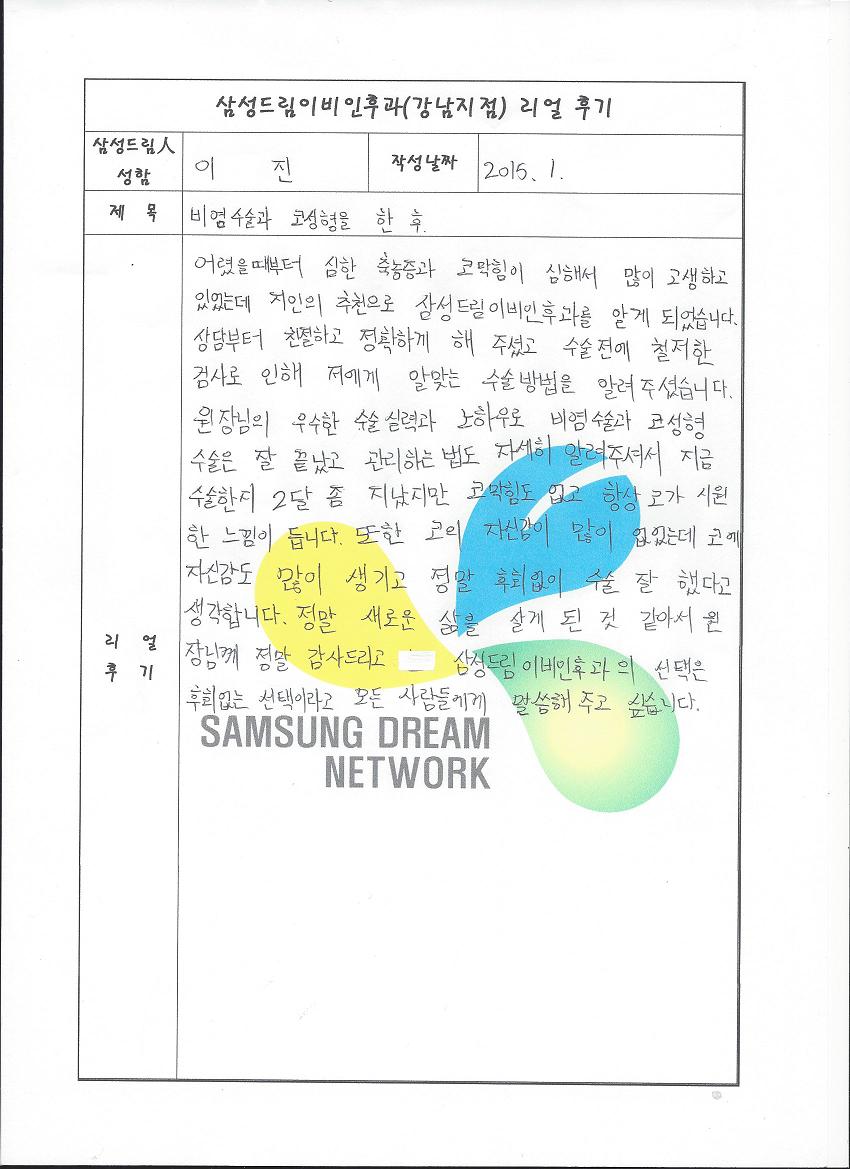 삼성드림이비인후과(강남지점) 리얼 후기
삼성드림人 성함
이 진
작성날짜
2015. 1.
제 목
비염수술과 코성형을 한 후.
리 얼 후 기
어렸을때부터 심한 축농증과 코막힘이 심해서 많이 고생하고
있었는데 지인의 추천으로 삼성드림이비인후과를 알게 되었습니다.
상담부터 친절하고 정확하게 해 주셨고 수술전에 철저한
검사로 인해 저에게 알맞는 수술방법을 알려주셨습니다.
원장님의 우수한 수술실력과 노하우로 비염수술과 코성형
수술은 잘 끝났고 관리하는법도 자세히 알려주셔서 지금
수술한지 2달 좀 지났지만 코막힘도 없고 항상 코가 시원
한 느낌이 듭니다. 또한 코의 자신감이 많이 없었는데 코에
자신감도 많이 생기고 정말 후회없이 수술 잘 했다고
생각합니다. 정말 새로운 삶을 살게 된 것 같아서 원
장님께 정말 감사드리고 삼성드림이비인후과의 선택은
후회없는 선택이라고 모든 사람들에게 말씀해 주고 싶습니다.
SAMSUNG DREAM
NETWORK